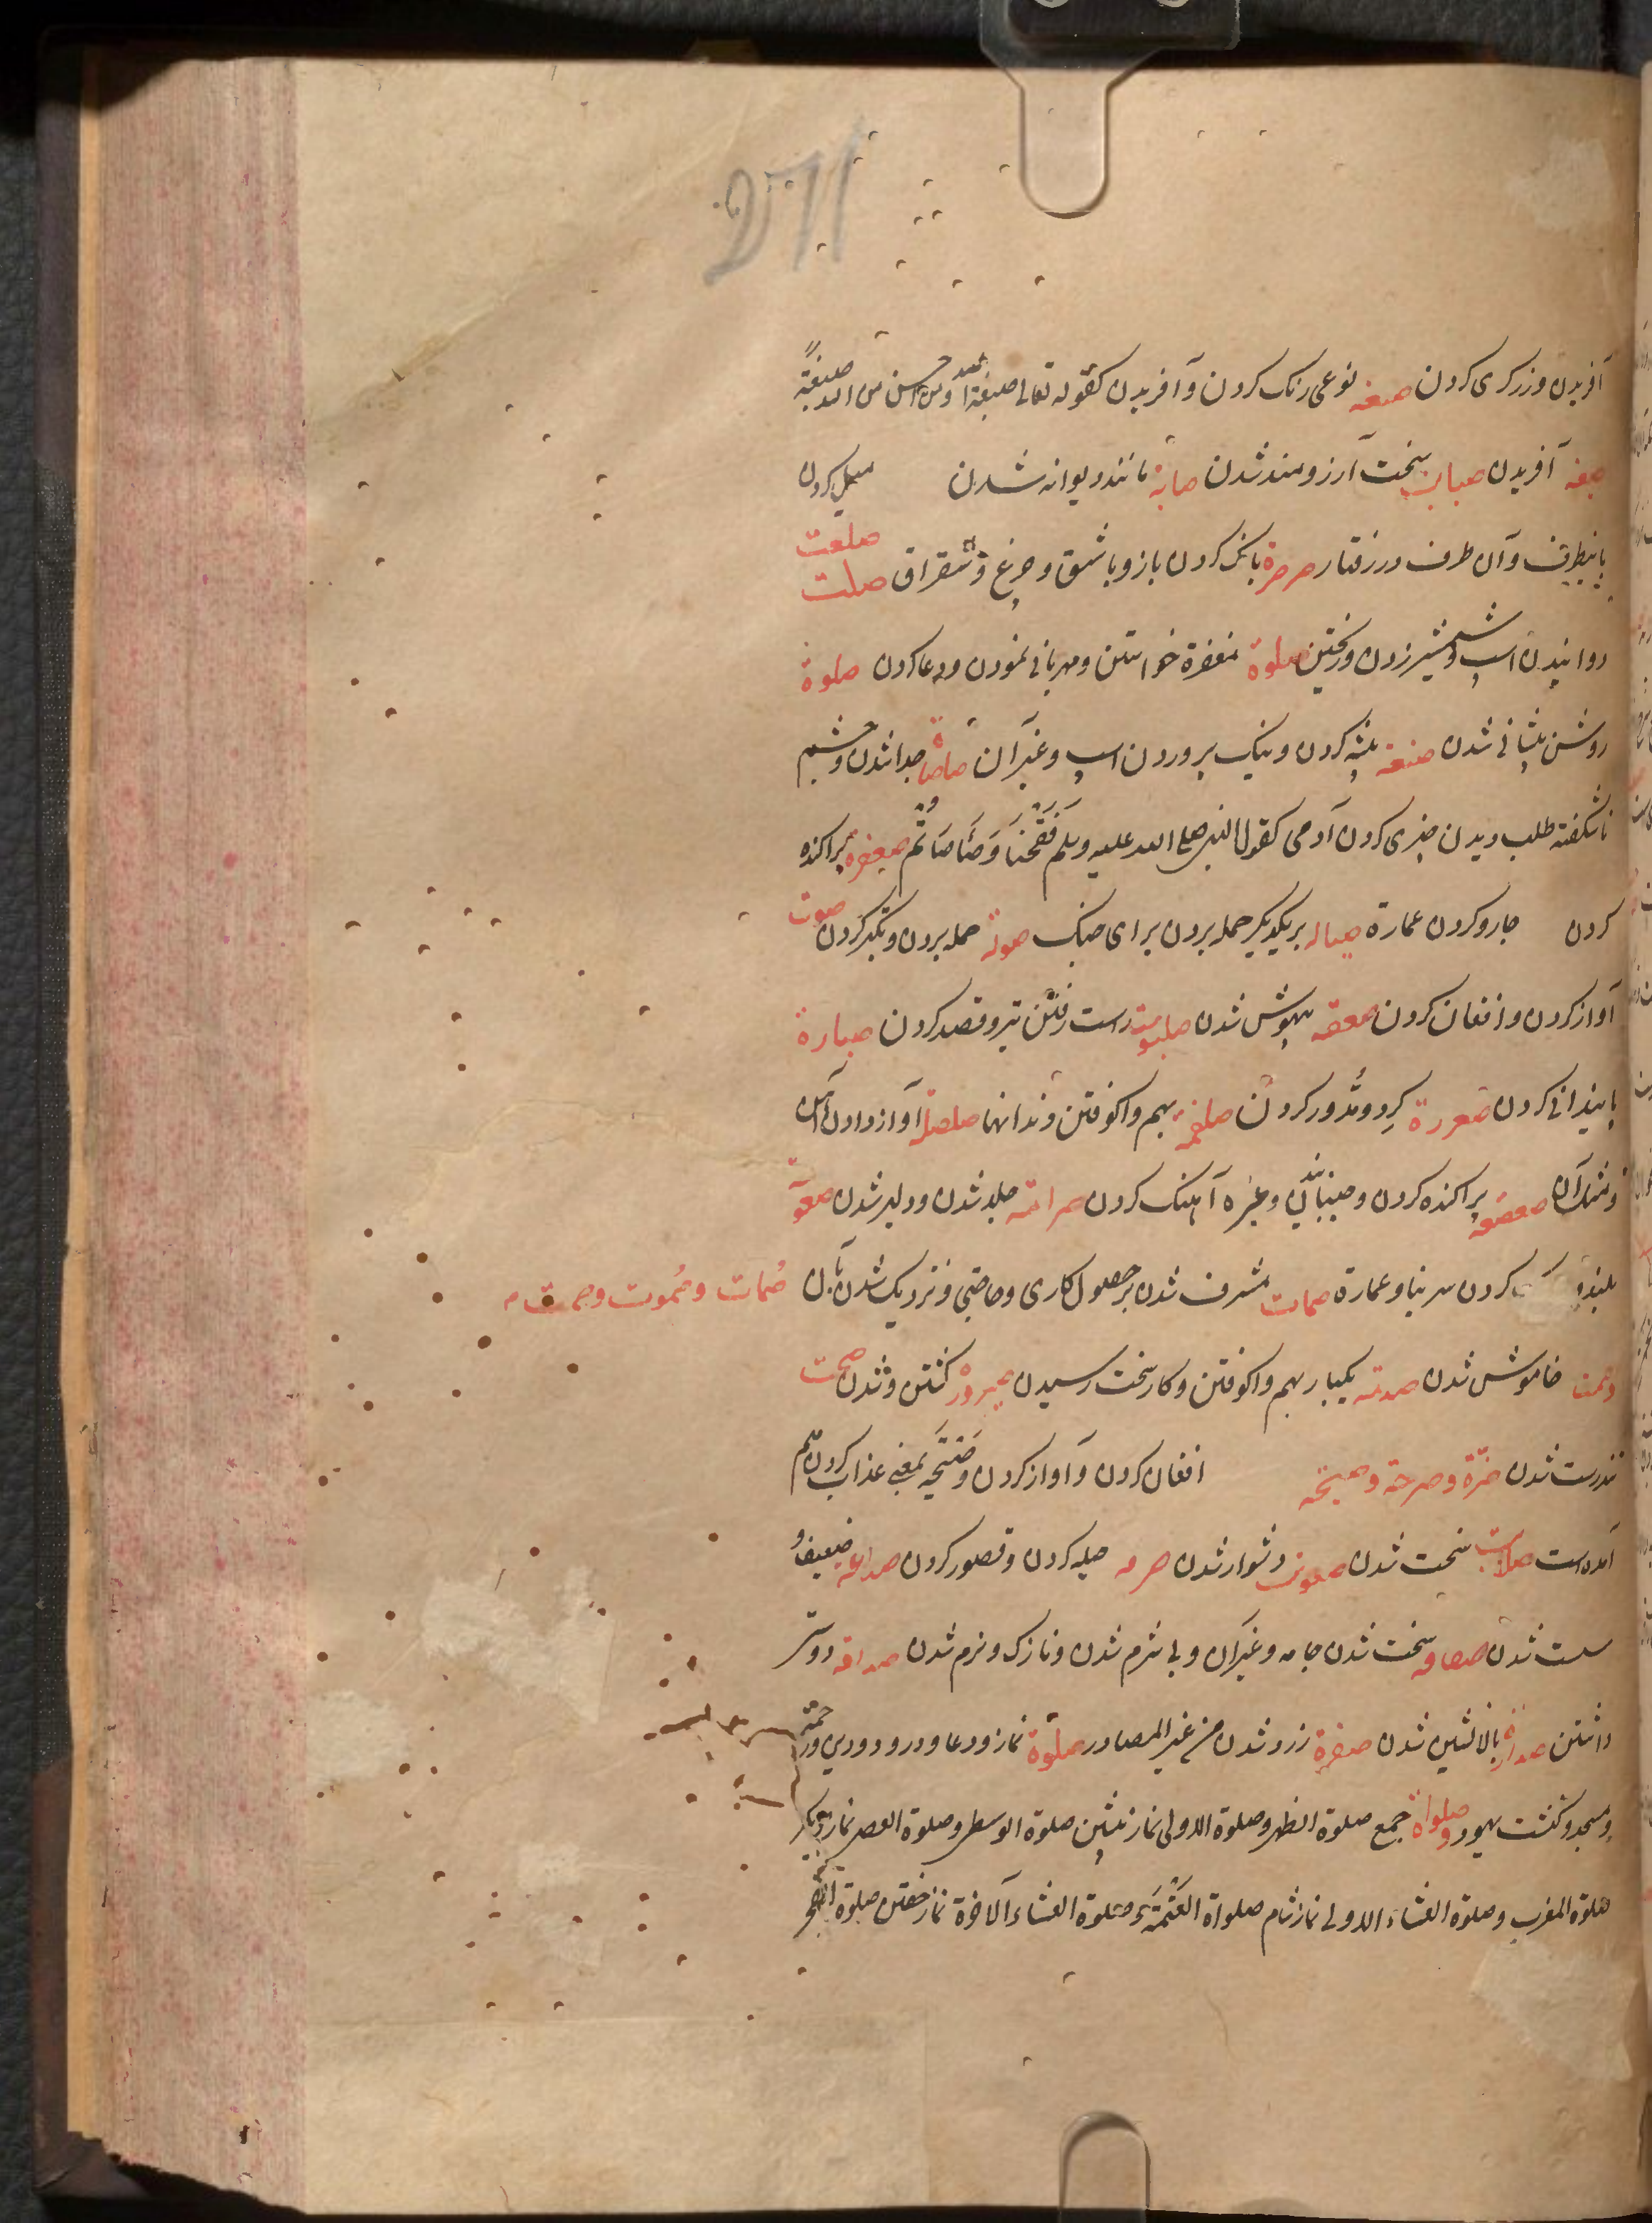 271
آفریدن و زرگری کردن صبغه نوعی رنک کردن و آفریدن کقوله تعالی صبغة الله ومن احسن من الله صبغةً
صبغه آفریدن صبابت سخت آرزومند شدن صابة مانند دیوانه شدن میل کردن
باینطرف و آن طرف در رفتار صرصرة بانک کردن باز و باشق و چرغ و شقراق صلعت صلت
دوانیدن اسپ و شمشیر زدن و ریختن صلوة مغفرة خواستن و مهربانی نمودن و دعا کردن صلوة
روشن پیشانی شدن صنعة پیشه کردن و نیک پروردن اسپ و غیر آن صاصاة جدا شدن و چشم
ناشکفته طلب دیدن چیزی کردن آدمی کقول النبی صلی الله علیه وسلم فَفَقَّحْنَا وَصَأصَأتُم صعفره پراکنده
کردن جارو کردن عمارة صیاله بریکدیکر حمله بردن برای جنک صولة حمله بردن و تکبر کردن صوت
آواز کردن و افغان کردن صعقه بیهوش شدن صلیبوت راست رفتن تیر و قصد کردن صبارة
بایندانی کردن صعررة کرد و مُدور کردن صلقمة بهم واکوفتن دندانها صلصلة آواز دادن آهن
و مثل آن صعصعه پراکنده کردن و جنبانیدن و غیره آهنک کردن صرامة جلد شدن و دلیر شدن صعوة
بلند کردن سر بنا و عمارة صمات مشرف شدن بر حصول کاری و حاجتی و نزدیک شدن بآن صُمات و صُموت و صمت
و صمت خاموش شدن صدمة یکبار بهم واکوفتن و کار سخت رسیدن صیرورة کشتن و شدن صحت
تندرست شدن صرّة و صرخة و صیحه افغان کردن و آواز کردن و صَیحَة بمعنی عذاب کردن هم
آمده است صلابت سخت شدن صعوبت دشوار شدن صرمه حیله کردن و قصور کردن صداغه ضعیف و
سست شدن صفاقه سخت شدن جامه و غیر آن و بی شرم شدن و نازک و نرم شدن صداقه دوست
داشتن صدارة بالانشین شدن صفرة زرد شدن من غیر المصادر صلوة نماز و دعا و درود و دین و رحمة
و مسجد و کنشت یهود و صلواة جمع صلوة الظهر و صلوة الاولی نماز پیشین صلوة الوسطی و صلوة العصر نماز دیکر
صلوة المغرب و صلوة العشاء الاولی نماز شام صلواة العَتَمَة و صلوة العشاء الآخرة نماز خفتن صلوة الفجر